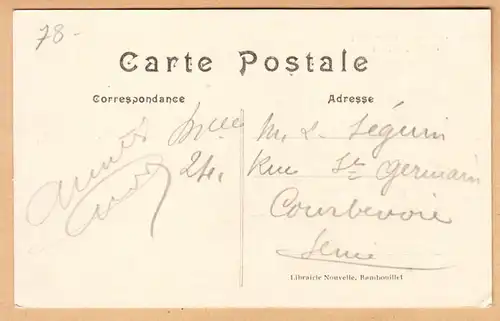 78-
Carte Postale
Correspondance
Adresse
24,
M. L. Séguin
Rue St Germain
Courbevoie
Seine
Librairie Nouvelle, Rambouillet